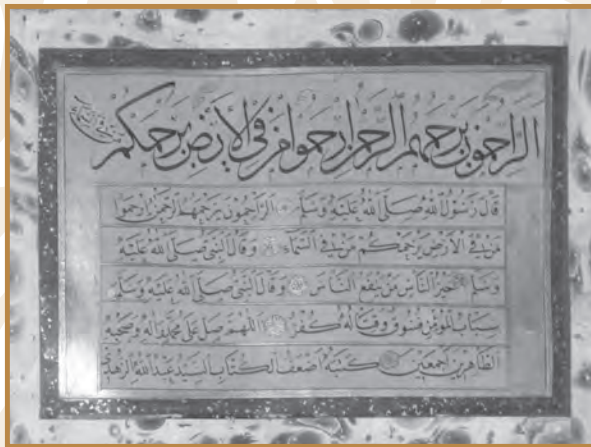 الراحمون يرحمهم الرحمن ارحموا من في الأرض يرحمكم من في السماء
قال رسول الله صلى الله عليه وسلم الراحمون يرحمهم الرحمن ارحموا
من في الأرض يرحمكم من في السماء وقال النبي صلى الله عليه
وسلم خير الناس من ينفع الناس وقال النبي صلى الله عليه وسلم
سباب المؤمن فسوق وقتاله كفر اللهم صل على محمد وآله وصحبه
الطاهرين أجمعين كتبه أضعف الكتاب السيد عبد الله الزهدي